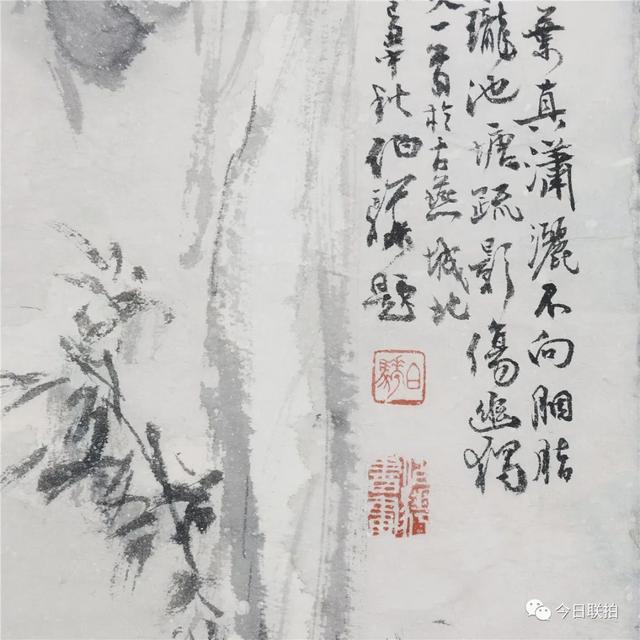 葉真瀟灑不向胭脂
瓏池塘疏影傷幽獨
於古燕城北
題
今日联拍